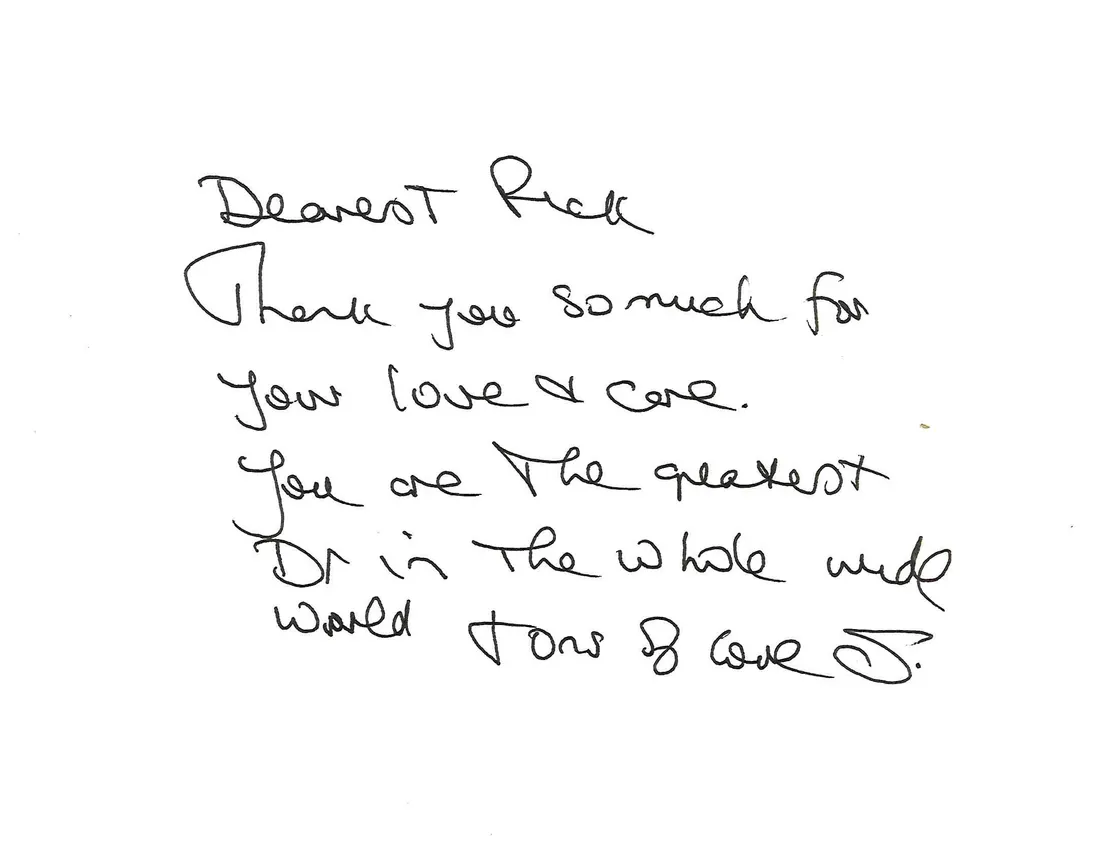 Dearest Rick
Thank you so much for
your love & care.
You are the greatest
Dr in the whole wide
world Tons of love J.